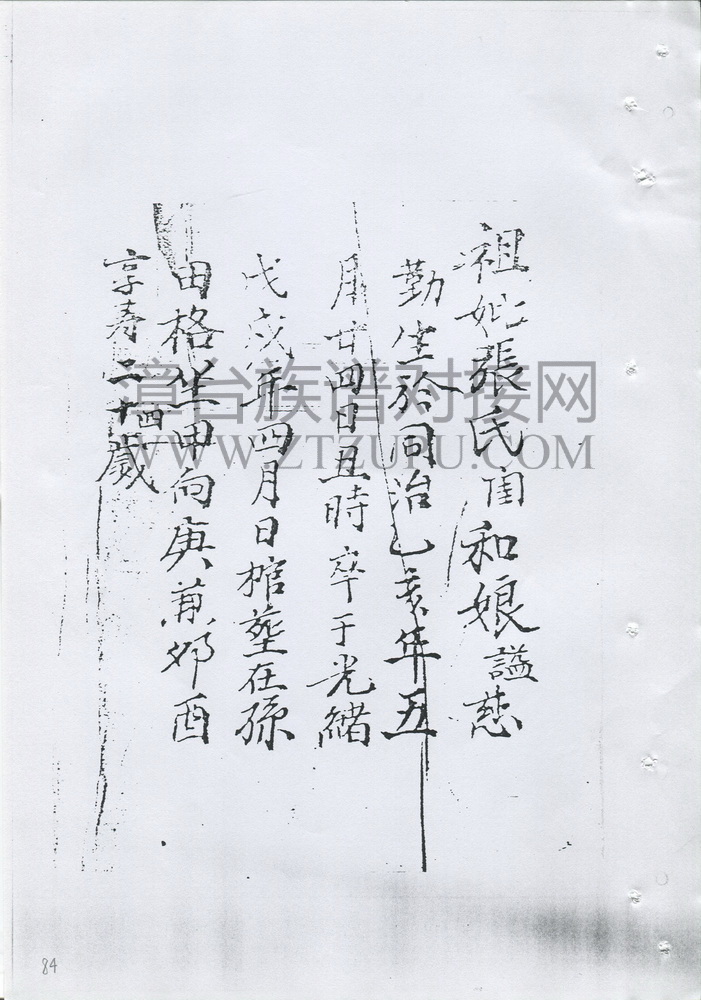 祖妣張氏閨和娘謚慈
勤生於同治乙亥年五
月廿四日丑時卒于光緒
戊戌年四月日棺塟在孫
田格坐甲向庚兼卯酉
享寿二十四歲
漳台族谱对接网
WWW.ZTZUPU.COM
84